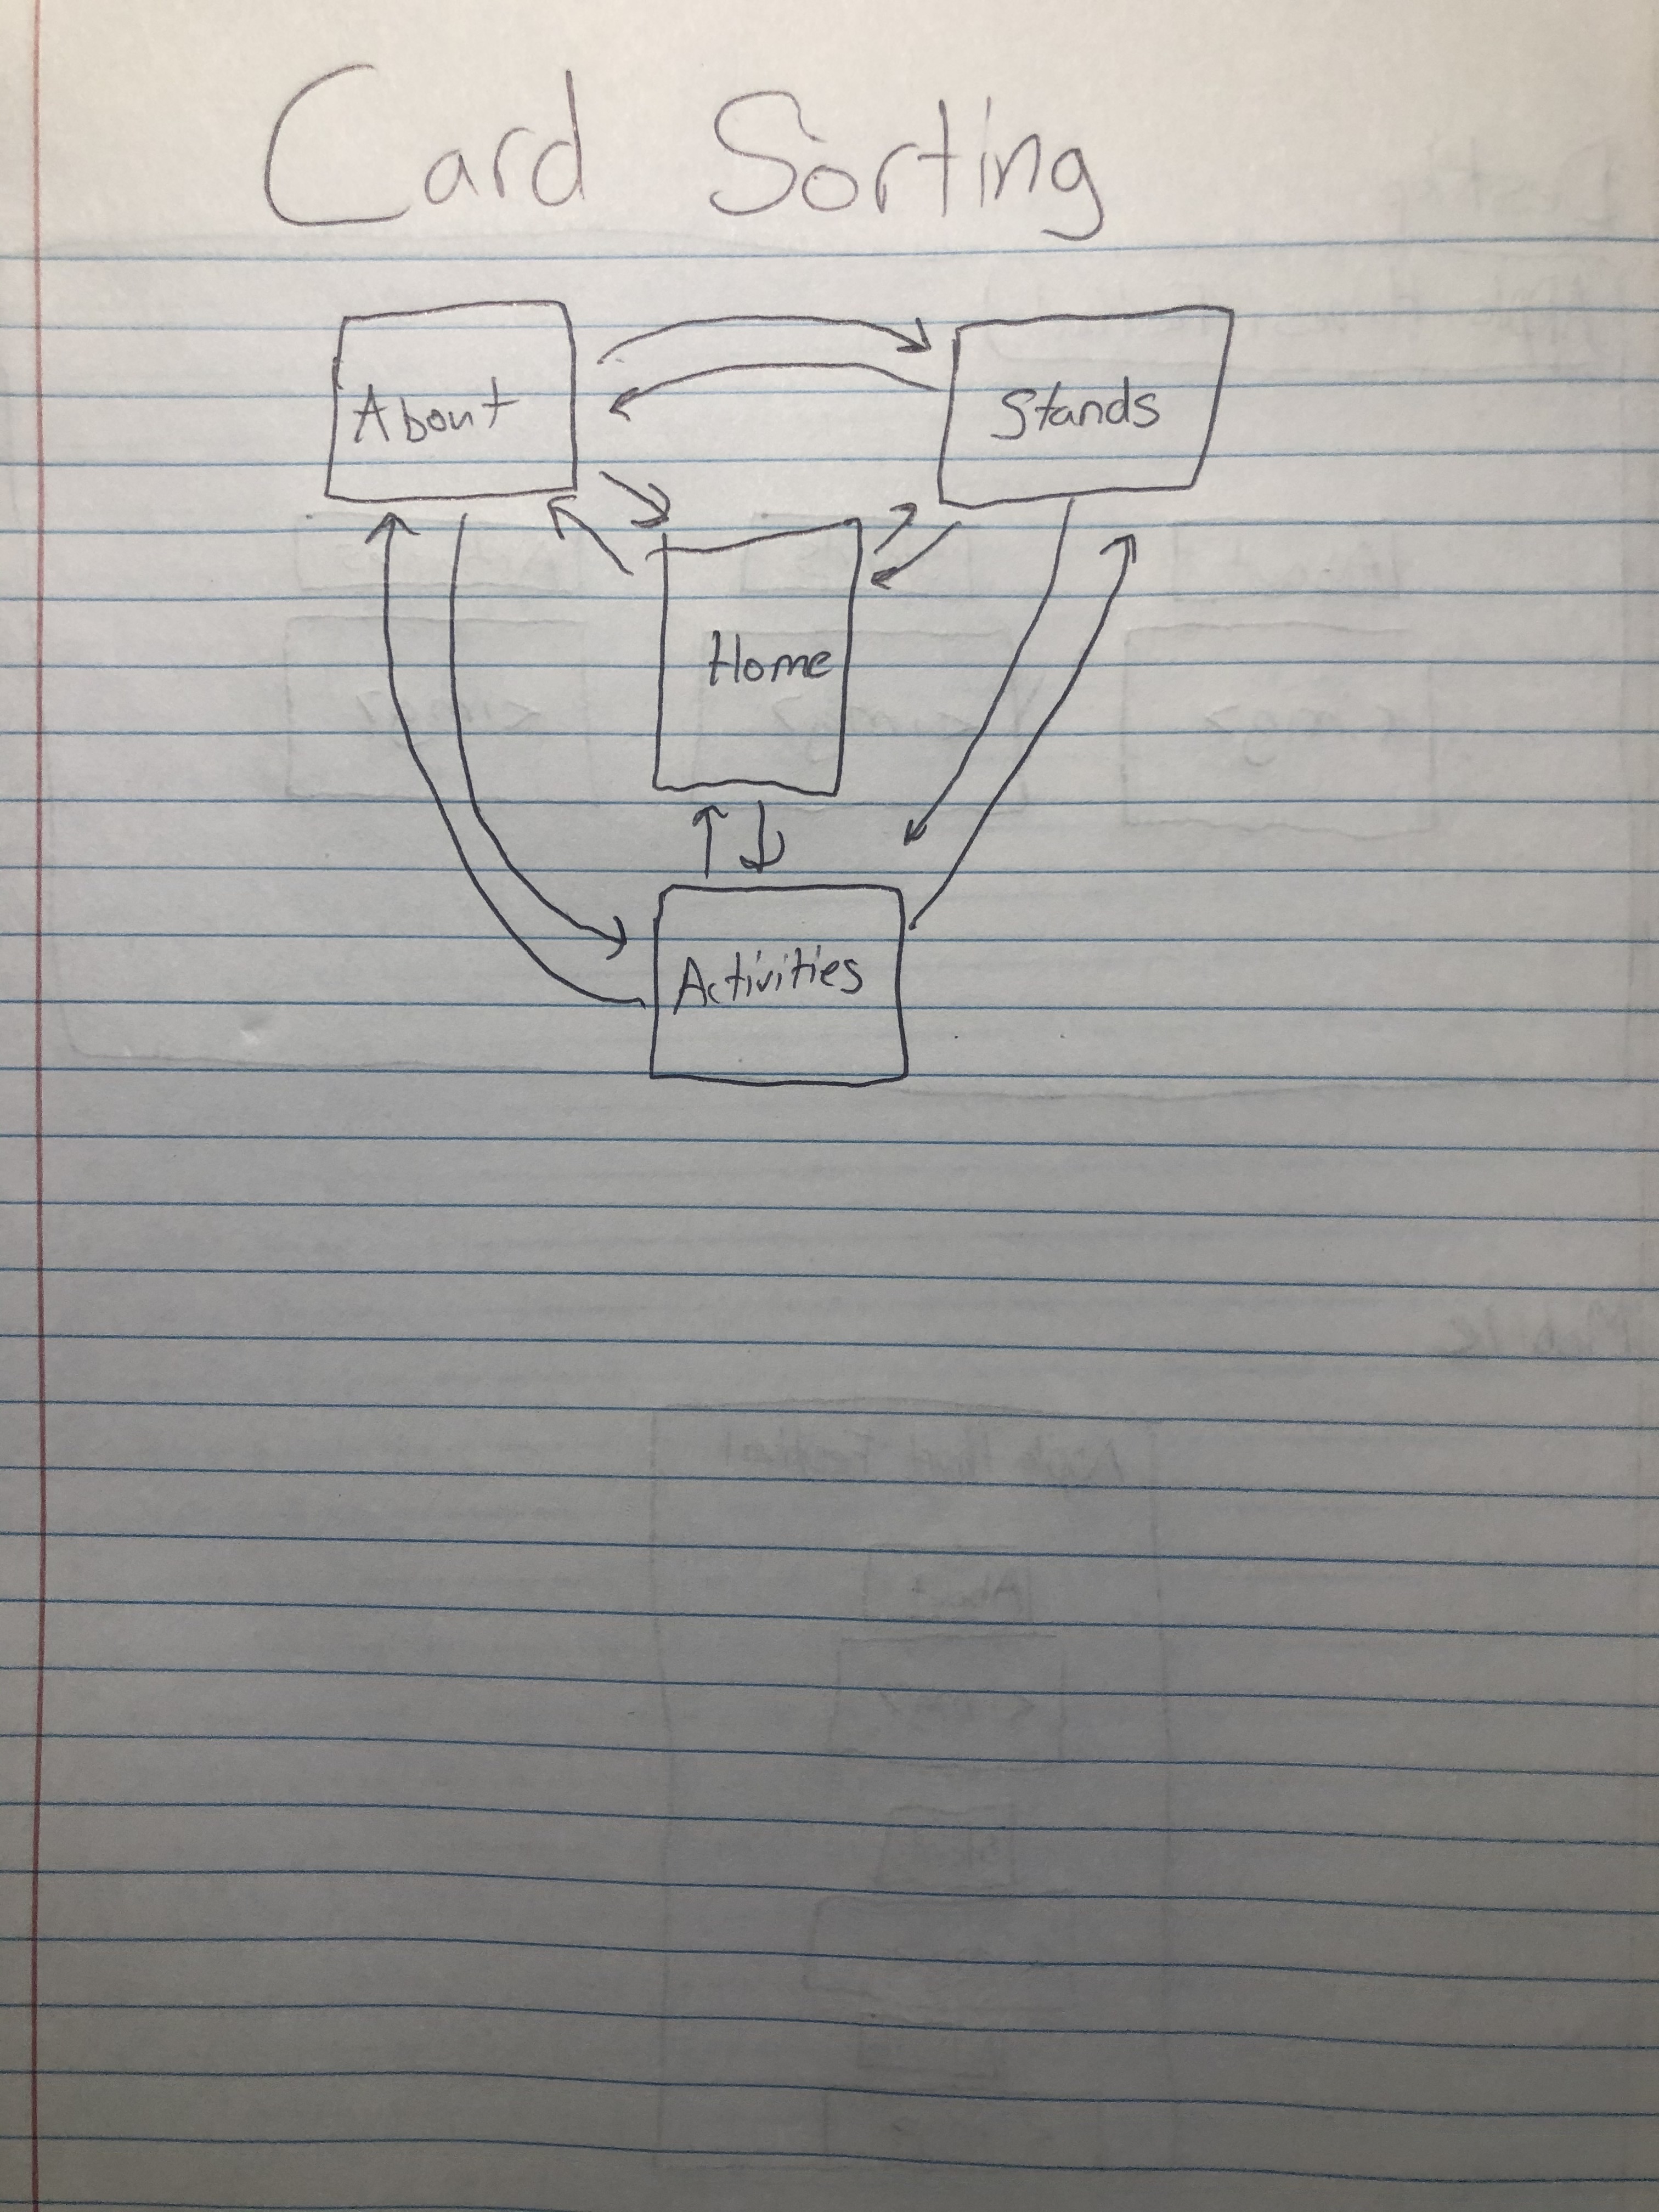 Card Sorting
About
Stands
Home
Activities